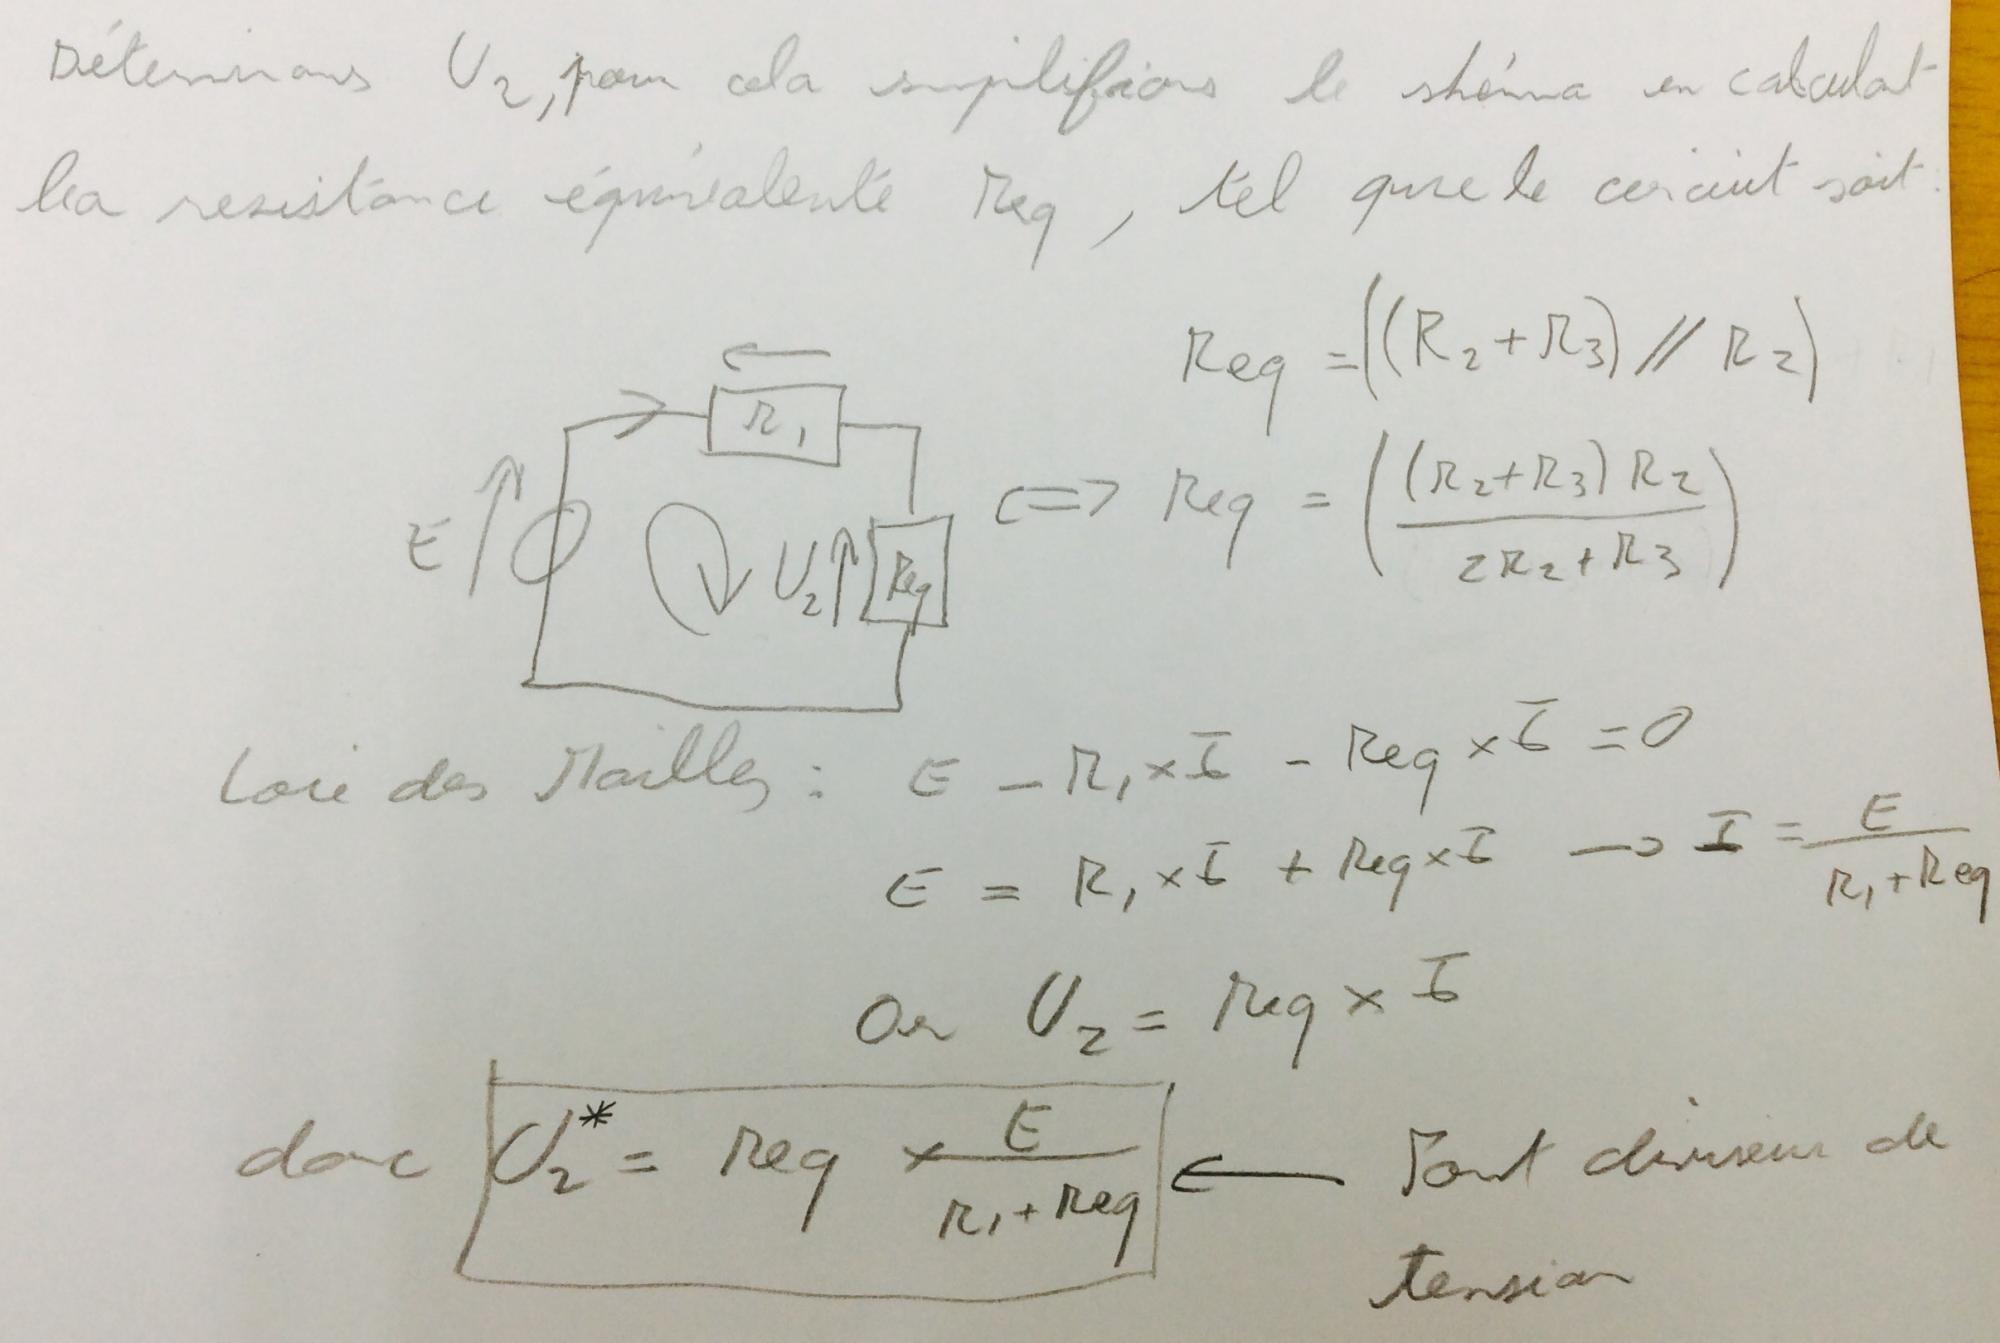 Déterminons U2, pour cela simplifions le shéma en calculant
la resistance équivalente Req, tel que le circuit soit:
Req = ((R2+R3) // R2)
R1
E U2 Req
<=> Req = ((R2+R3) R2 / 2R2+R3)
Loie des Mailles : E - R1 × I - Req × I = 0
E = R1 × I + Req × I → I = E / R1+Req
Or U2 = Req × I
donc U2* = Req × E / R1+Req ← Pont diviseur de
tension